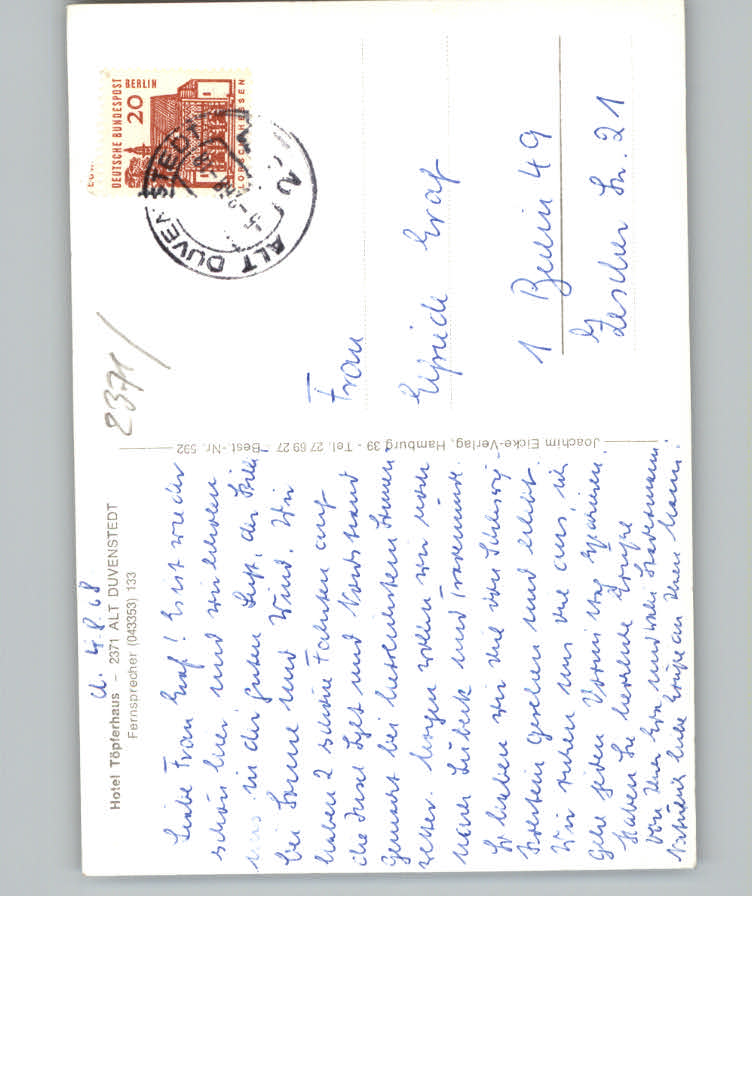 Hotel Töpferhaus – 2371 ALT DUVENSTEDT
Fernsprecher (043353) 133
d. 4.8.68
Liebe Frau Graf! Es ist wieder
schön hier und wir erholen
uns in der guten Luft, der Stille
bei Sonne und Wind. Wir
haben 2 schöne Fahrten auf
die Insel Sylt und Nordstrand
gemacht bei herrlichstem Sonnen-
wetter. Morgen wollen wir noch
nach Lübeck und Travemünde.
So haben wir viel von Schleswig-
Holstein gesehen und erlebt.
Wir ruhen uns viel aus, ich
gehe jeden Vormittag spazieren.
Haben Sie herzliche Grüße
von Ihrer
Natürlich liebe Grüße an Ihren Mann.
Joachim Eicke-Verlag, Hamburg 39 - Tel. 27 69 27 - Best.-Nr. 592
2371
DEUTSCHE BUNDESPOST BERLIN
20
LORSCH/HESSEN
ALT DUVENSTEDT
Frau
Elfriede Graf
1 Berlin 49
Lescher Str. 21